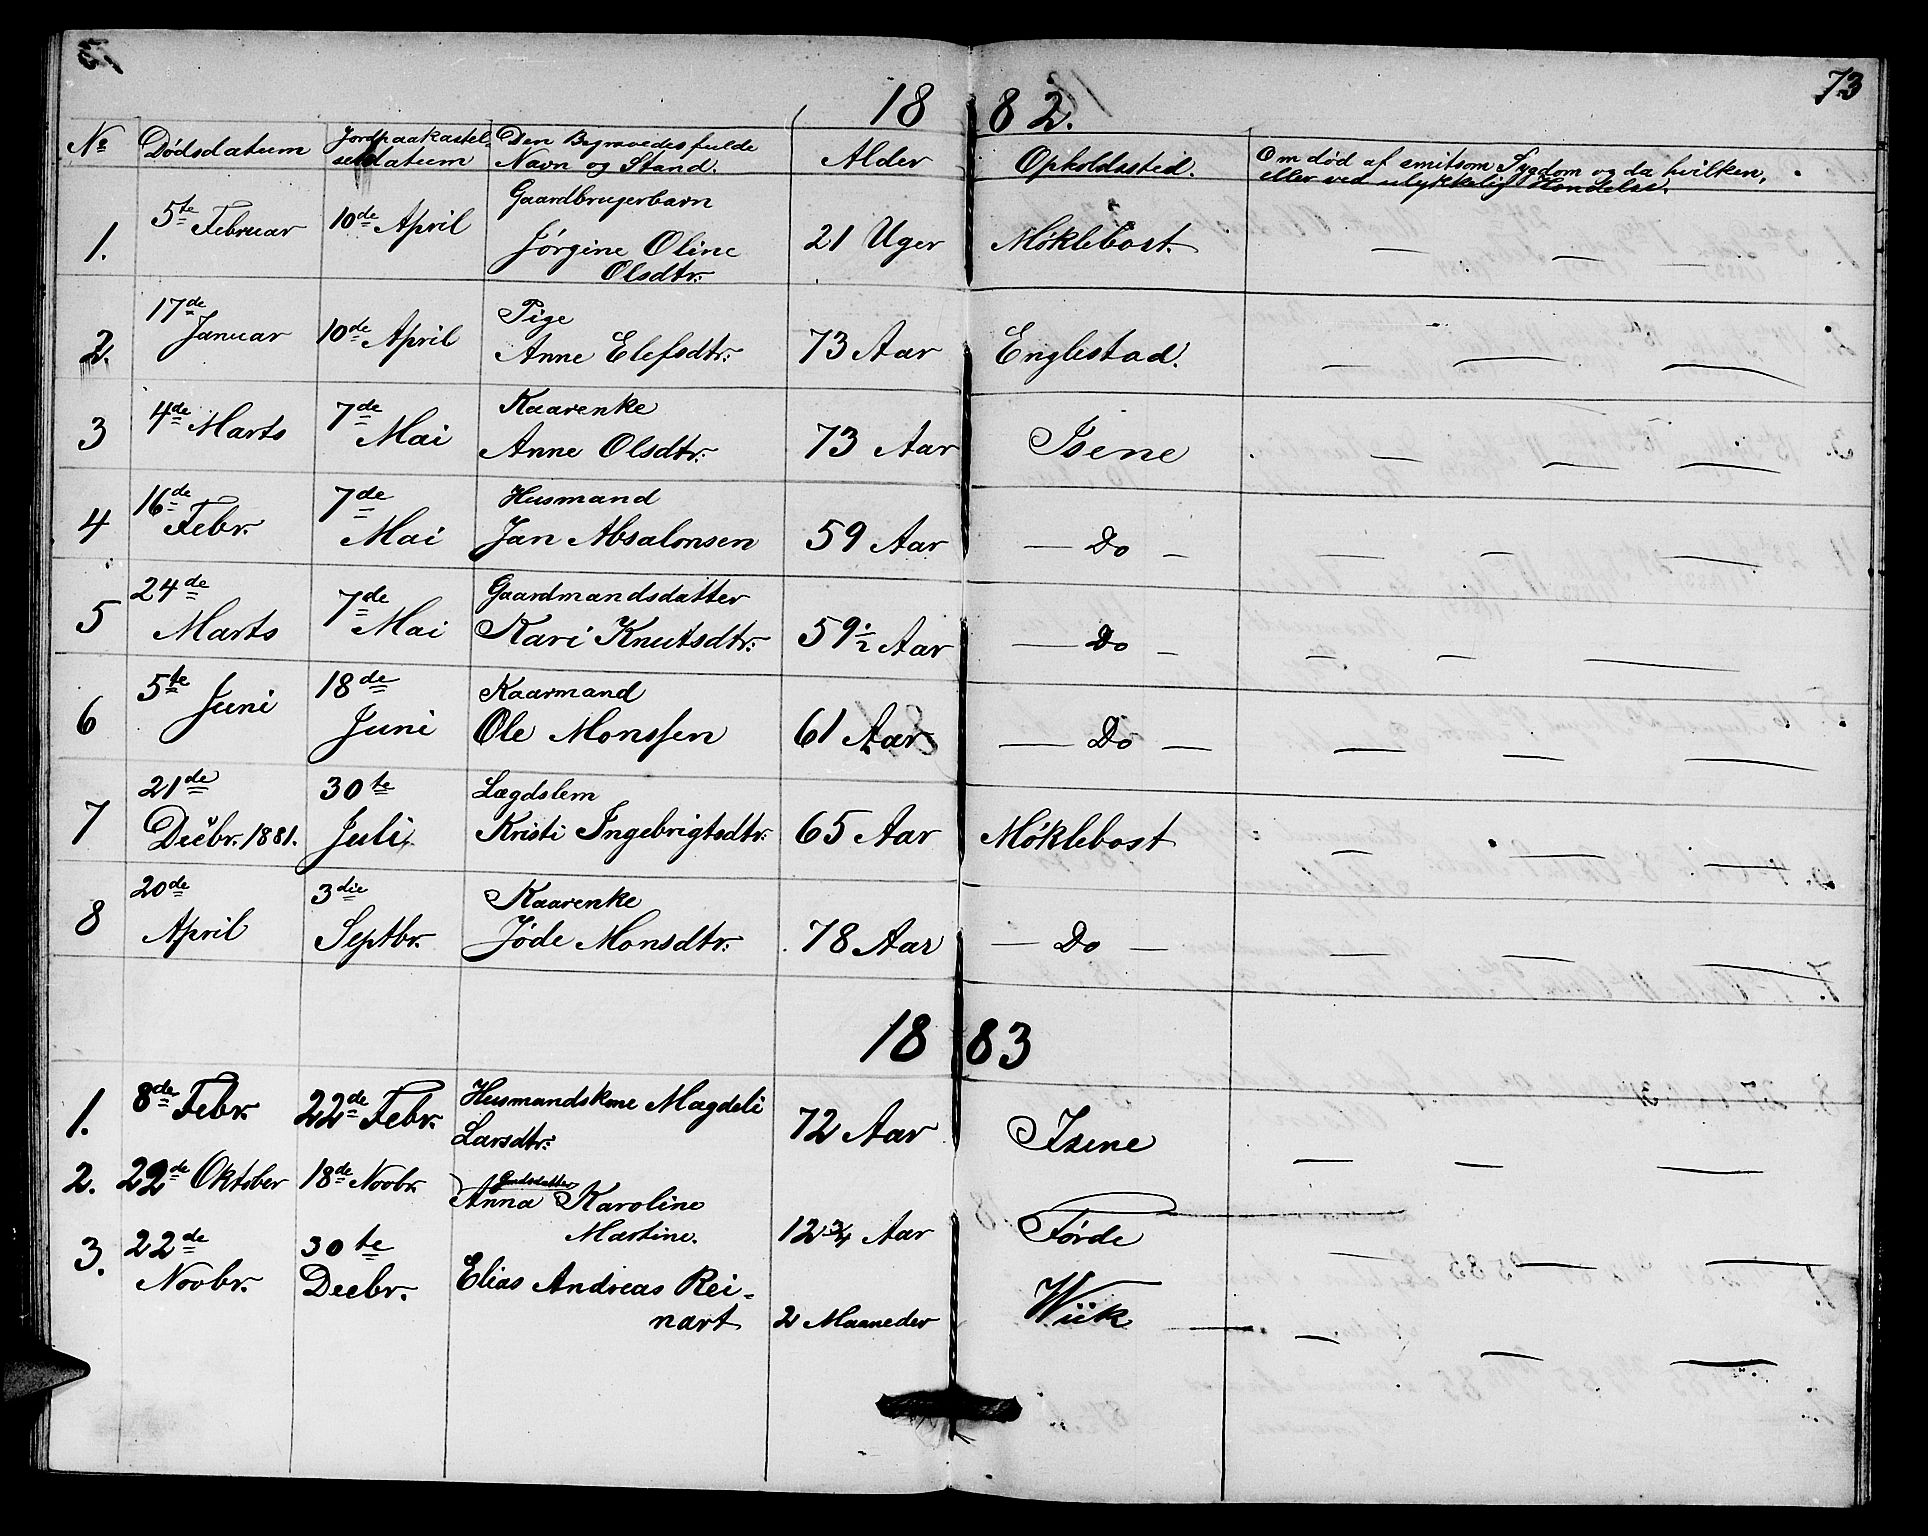 73
1882.
№ Dødsdatum Jordpaakastelsesdatum Den Begravedes fulde Navn og Stand. Alder Opholdssted. Om død af smitsom Sygdom og da hvilken, eller ved ulykkelig Hendelse.
1. 5te Februar 10de April Gaardbrugerbarn Jørgine Oline Olsdtr. 21 Uger Møklebost. — — —
2. 17de Januar 10de April Pige Anne Elefsdtr. 73 Aar Englestad. — — —
3 4de Marts 7de Mai Kaarenke Anne Olsdtr. 73 Aar Isene — — —
4 16de Febr. 7de Mai Husmand Jan Absalonsen 59 Aar — Do — — — —
5 24de Marts 7de Mai Gaardmandsdatter Kari Knutsdtr. 59½ Aar — Do — — — —
6 5te Juni 18de Juni Kaarmand Ole Monssen 61 Aar — Do — — — —
7 21de Decbr. 1881. 30te Juli Lægdslem Kristi Ingebrigtsdtr. 65 Aar Møklebost — — —
8 20de April 3die Septbr. Kaarenke Jøde Monsdtr. 78 Aar — Do — — — —
1883
1. 8de Febr. 22de Febr. Husmandskone Magdeli Larsdtr. 72 Aar Isene — — —
2. 22de Oktober 18de Novbr. Anna Karoline Martine. 12¾ Aar Førde — — —
3. 22de Novbr. 30te Decbr. Elias Andreas Reinart 2 Maaneder Wiik — — —